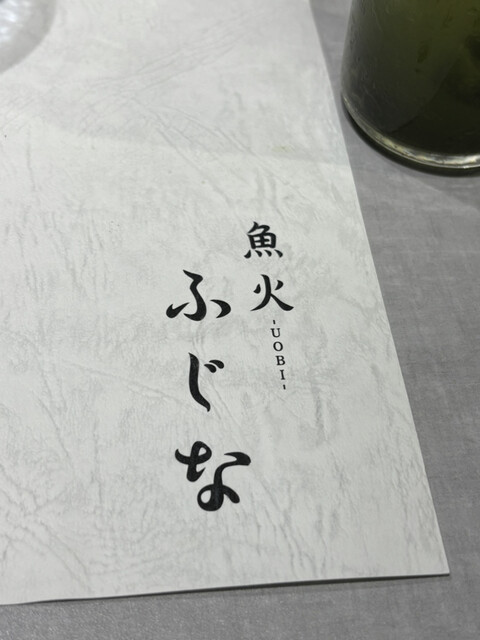 魚火
-UOBI-
ふじな